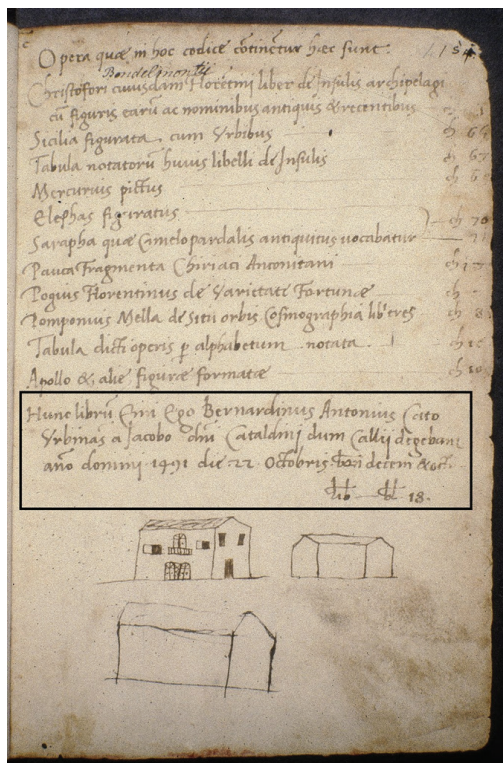 Opera quæ in hoc codice cõtinẽtur hæc sunt.
Bondelmontii
Christofori cuiusdam Florẽtini liber de Insulis archipelagi
cũ figuris earũ ac nominibus antiquis & recentibus
Sicilia figurata cum Vrbibus ch 66
Tabula notatorũ huius libelli de Insulis ch 67
Mercurius pictus ch
Elephas figuratus ch 70
Sarapha quæ Camelopardalis antiquitus uocabatur
Pauca Fragmenta Chiriaci Anconitani
Pogius Florentinus de Varietate Fortunæ
Pomponius Mella de Situ orbis Cosmographia lib tres
Tabula dicti operis p alphabetum notata
Apollo & aliæ figuræ formatæ
Hunc librũ Emi Ego Bernardinus Antonius Cato
Vrbinas a Iacobo dñi Cataldini dum Callii degebam
año domini 1491 die 22 Octobris decem & octo
18